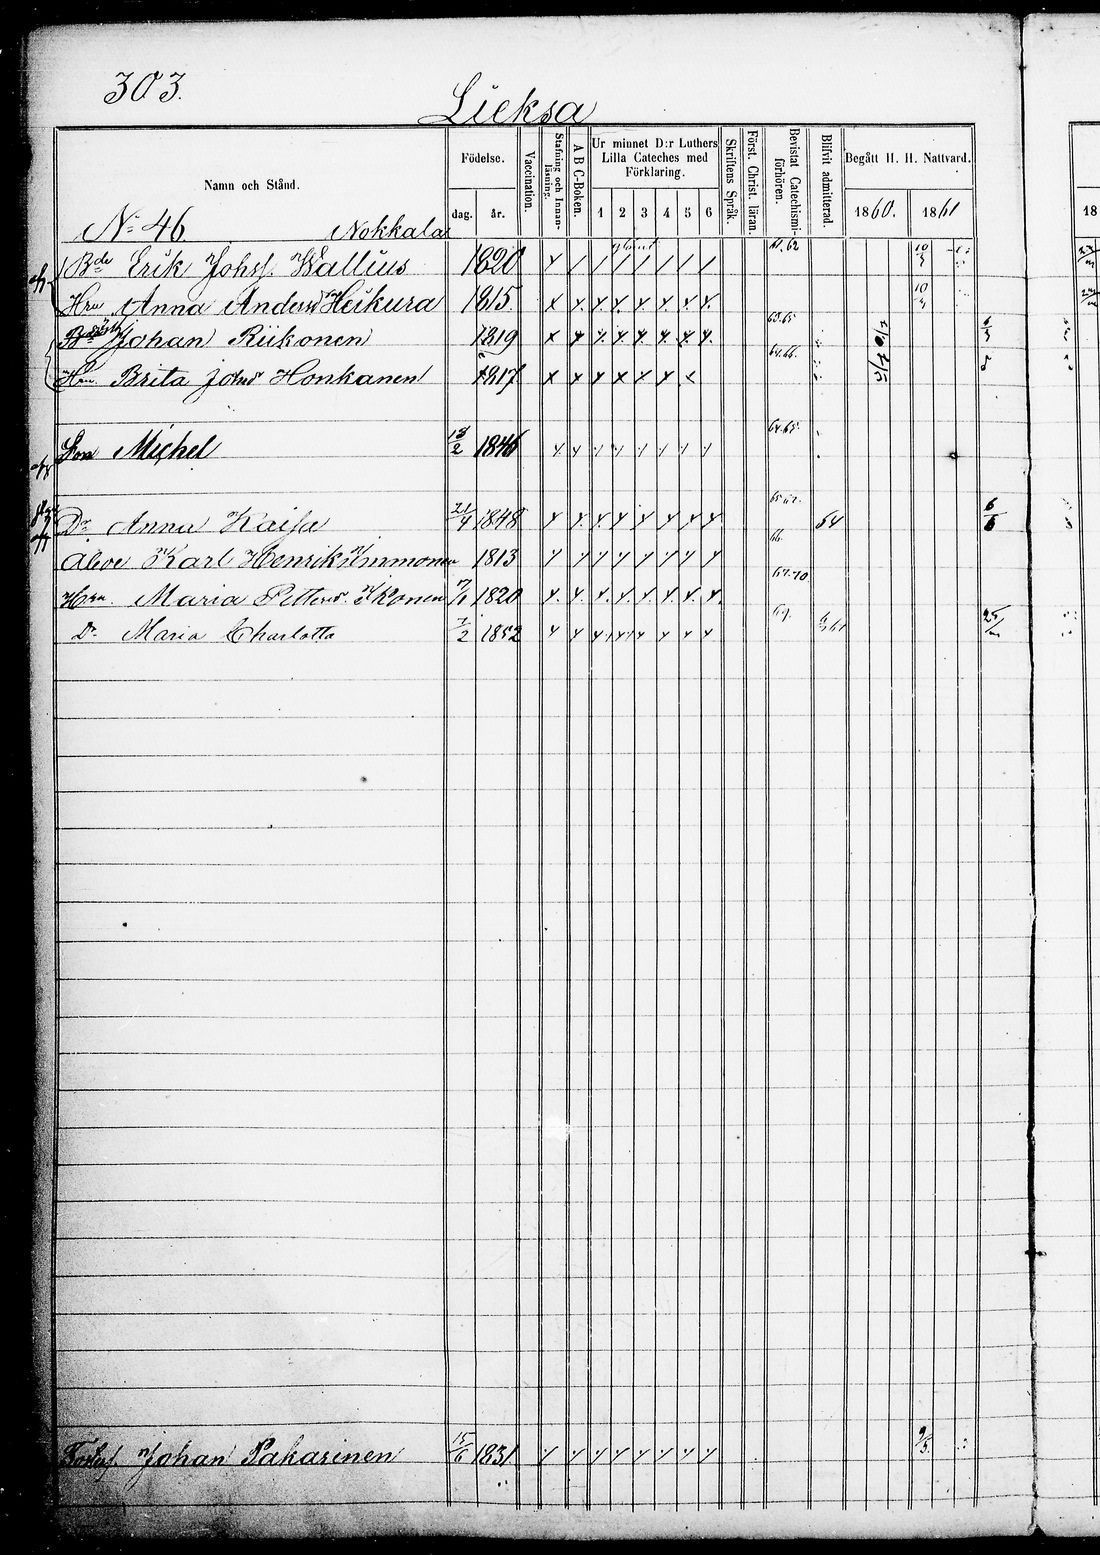 303.
Lieksa
Namn och Stånd.
Födelse.
dag.
år.
Vaccination.
Stafning och Innanläsning.
A B C-Boken.
Ur minnet D:r Luthers
Lilla Cateches med
Förklaring.
1 2 3 4 5 6
Skriftens Språk.
Först. Christ. läran.
Bevistat Catechismiförhören.
Blifvit admitterad.
Begått H. H. Nattvard.
1860. 1861
18
No 46. Nokkala
Bde Erik Johsf. Wallius 1820 61.62 10/3
Hru Anna Andersd Heikura 1815. 10/3
Johan Riikonen 1819 63.65
Hru Brita Johsd Honkanen 1817 64.66.
Son Michel 18/2 1846 64.65.
Dr Anna Kaisa 21/4 1848 64 6/6
Karl Henriks Immonen 1813 66.
Hru Maria Petters. Ikonen 1820 67.70
Dr Maria Charlotta 1/2 1852 69.
Johan Pakarinen 15/6 1831 9/3